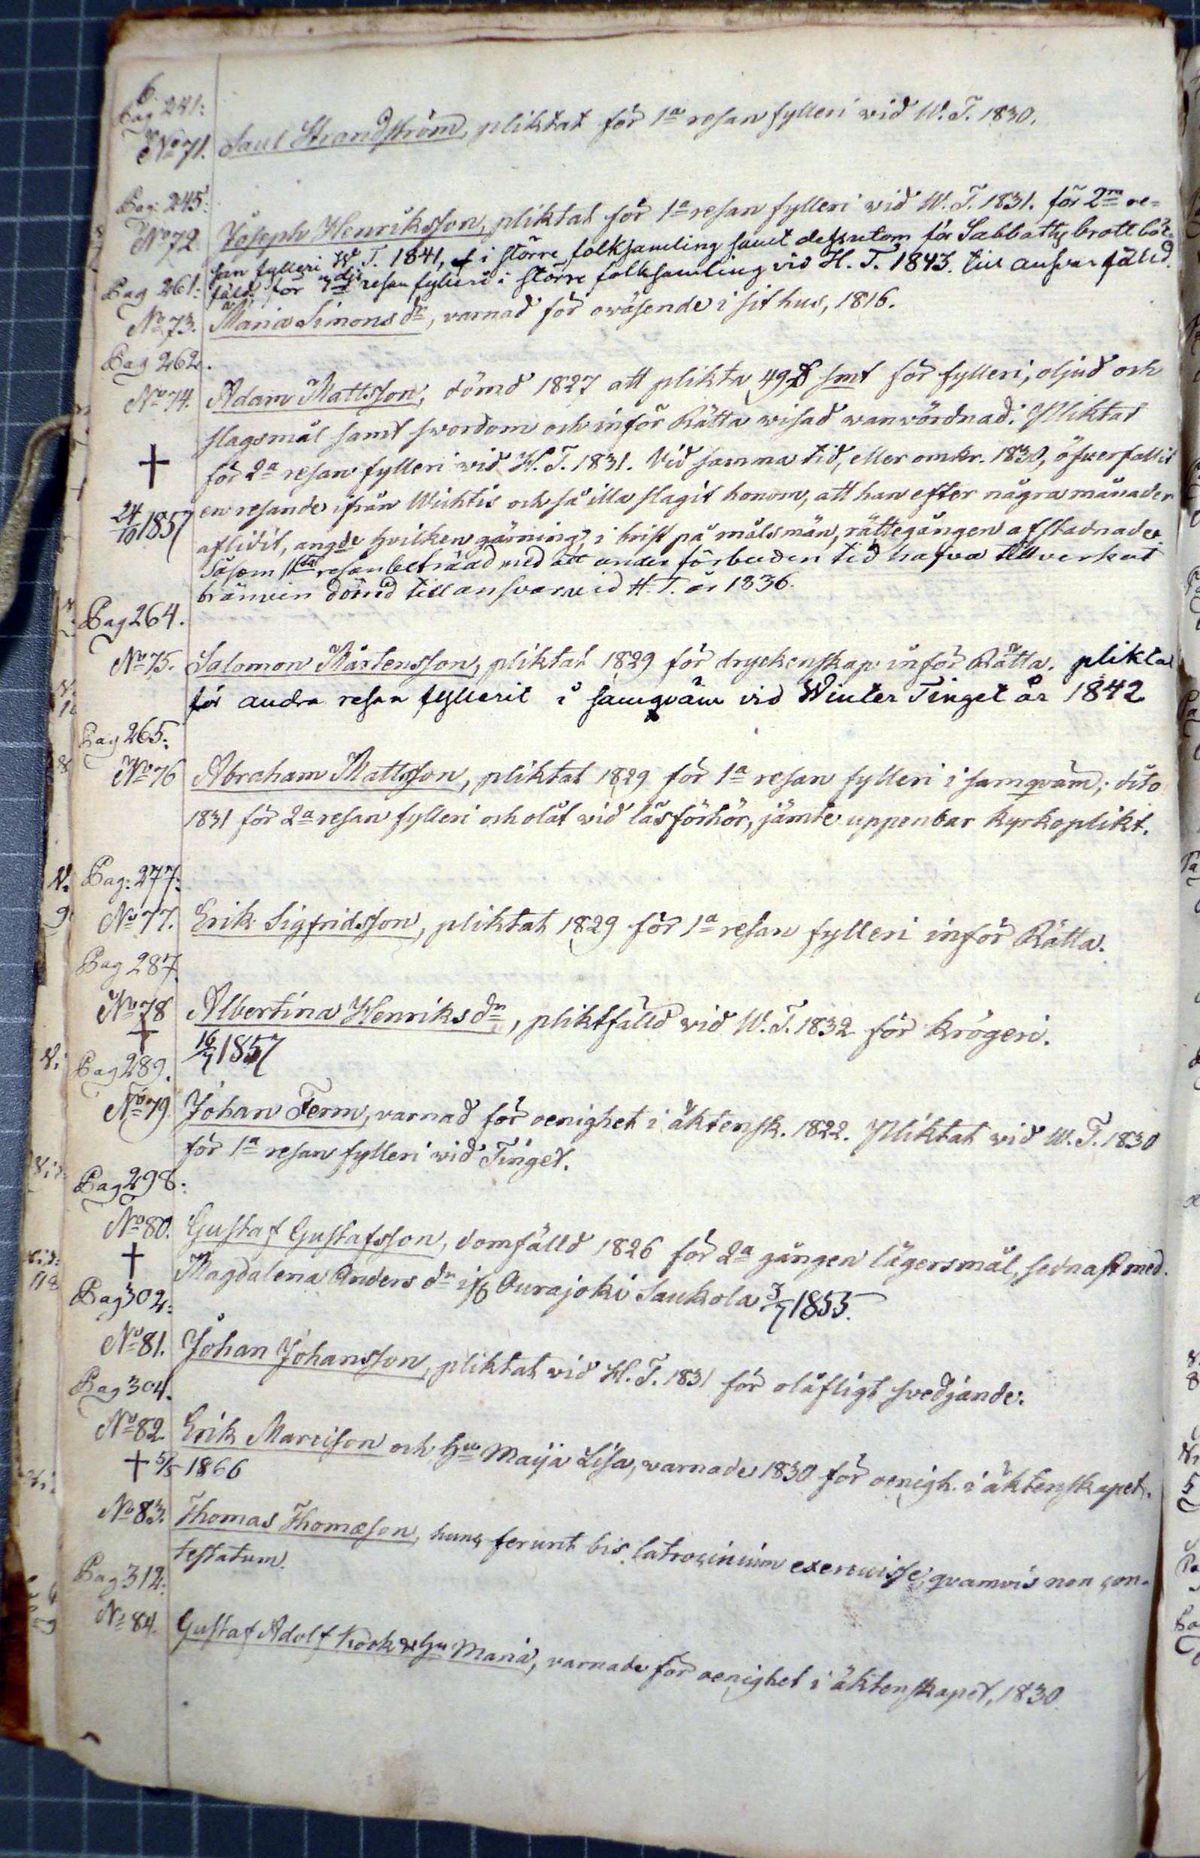 6.
Pag 241:
No 71. Saul Strandström, pliktat för 1a resan fylleri vid W. T. 1830.
Pag. 245:
No 72. Joseph Henriksson, pliktat för 1a resan fylleri vid W. T. 1831. för 2ra re=
san fylleri W. T. 1841, i större folksamling samt dessutom för Sabbatts brott böt=
fäld. för 3dje resan fylleri i större folksamling vid H. T. 1843. till ansvar fälld.
Pag 261:
No 73. Maria Simons dr, varnad för oväsende i sit hus, 1816.
Pag 262.
No 74. Adam Mattsson, dömd 1827 att plikta smt för fylleri, oljud och
slagsmål samt svordom och inför Rätta visad wanvördnad. Pliktat
† för 2a resan fylleri vid H. T. 1831. Vid samma tid, eller omkr. 1830, öfverfallit
24/10 1857 en resande ifrån Wichtis och så illa slagit honom, att han efter några månader
aflidit, angde hvilken gärning, i brist på målsmän, rättegången afstadnade.
Såsom 1sta resan beträdd med att under förbuden tid hafva tillverkat
bränvin dömd till ansvar vid H. T. år 1836.
Pag 264.
No 75. Salomon Mårtensson, pliktat 1829 för dryckenskap inför Rätta. pliktat
för andra resan fylleri i samqväm vid Winter Tinget år 1842
Pag 265:
No 76 Abraham Mattsson, pliktat 1829 för 1a resan fylleri i samqväm; dito
1831 för 2a resan fylleri och olåt vid läsförhör, jämte uppenbar kyrkoplikt.
Pag: 277:
No 77. Erik Sigfridsson, pliktat 1829 för 1a resan fylleri inför Rätta.
Pag 287.
No 78 Albertina Henriks dr, pliktfälld vid W. T. 1832 för krögeri.
† 16/7 1857
Pag 289.
No 79 Johan Ferm, varnad för oenighet i äktensk. 1822. Pliktat vid W. T. 1830
för 1a resan fylleri vid Tinget.
Pag 298:
No 80. Gustaf Gustafsson, domfälld 1826 för 2a gången lägersmål, sednast med
† Magdalena Anders dr ifr Aurajoki Saukola. 3/7 1855.
Pag 302:
No 81. Johan Johansson, pliktat vid H. T. 1831 för olåfligt svedjande.
Pag 304.
No 82 Erik Marcison och Hu Maija Lisa, varnade 1830 för oenigh. i äktenskapet.
† 5/5 1866
No 83. Thomas Thomæson, hunc ferunt bis latrocinium exercuisse, qvamvis non con=
testatum.
Pag 312:
No 84. Gustaf Adolf Kock & Hu Maria, varnade för oenighet i äktenskapet, 1830.